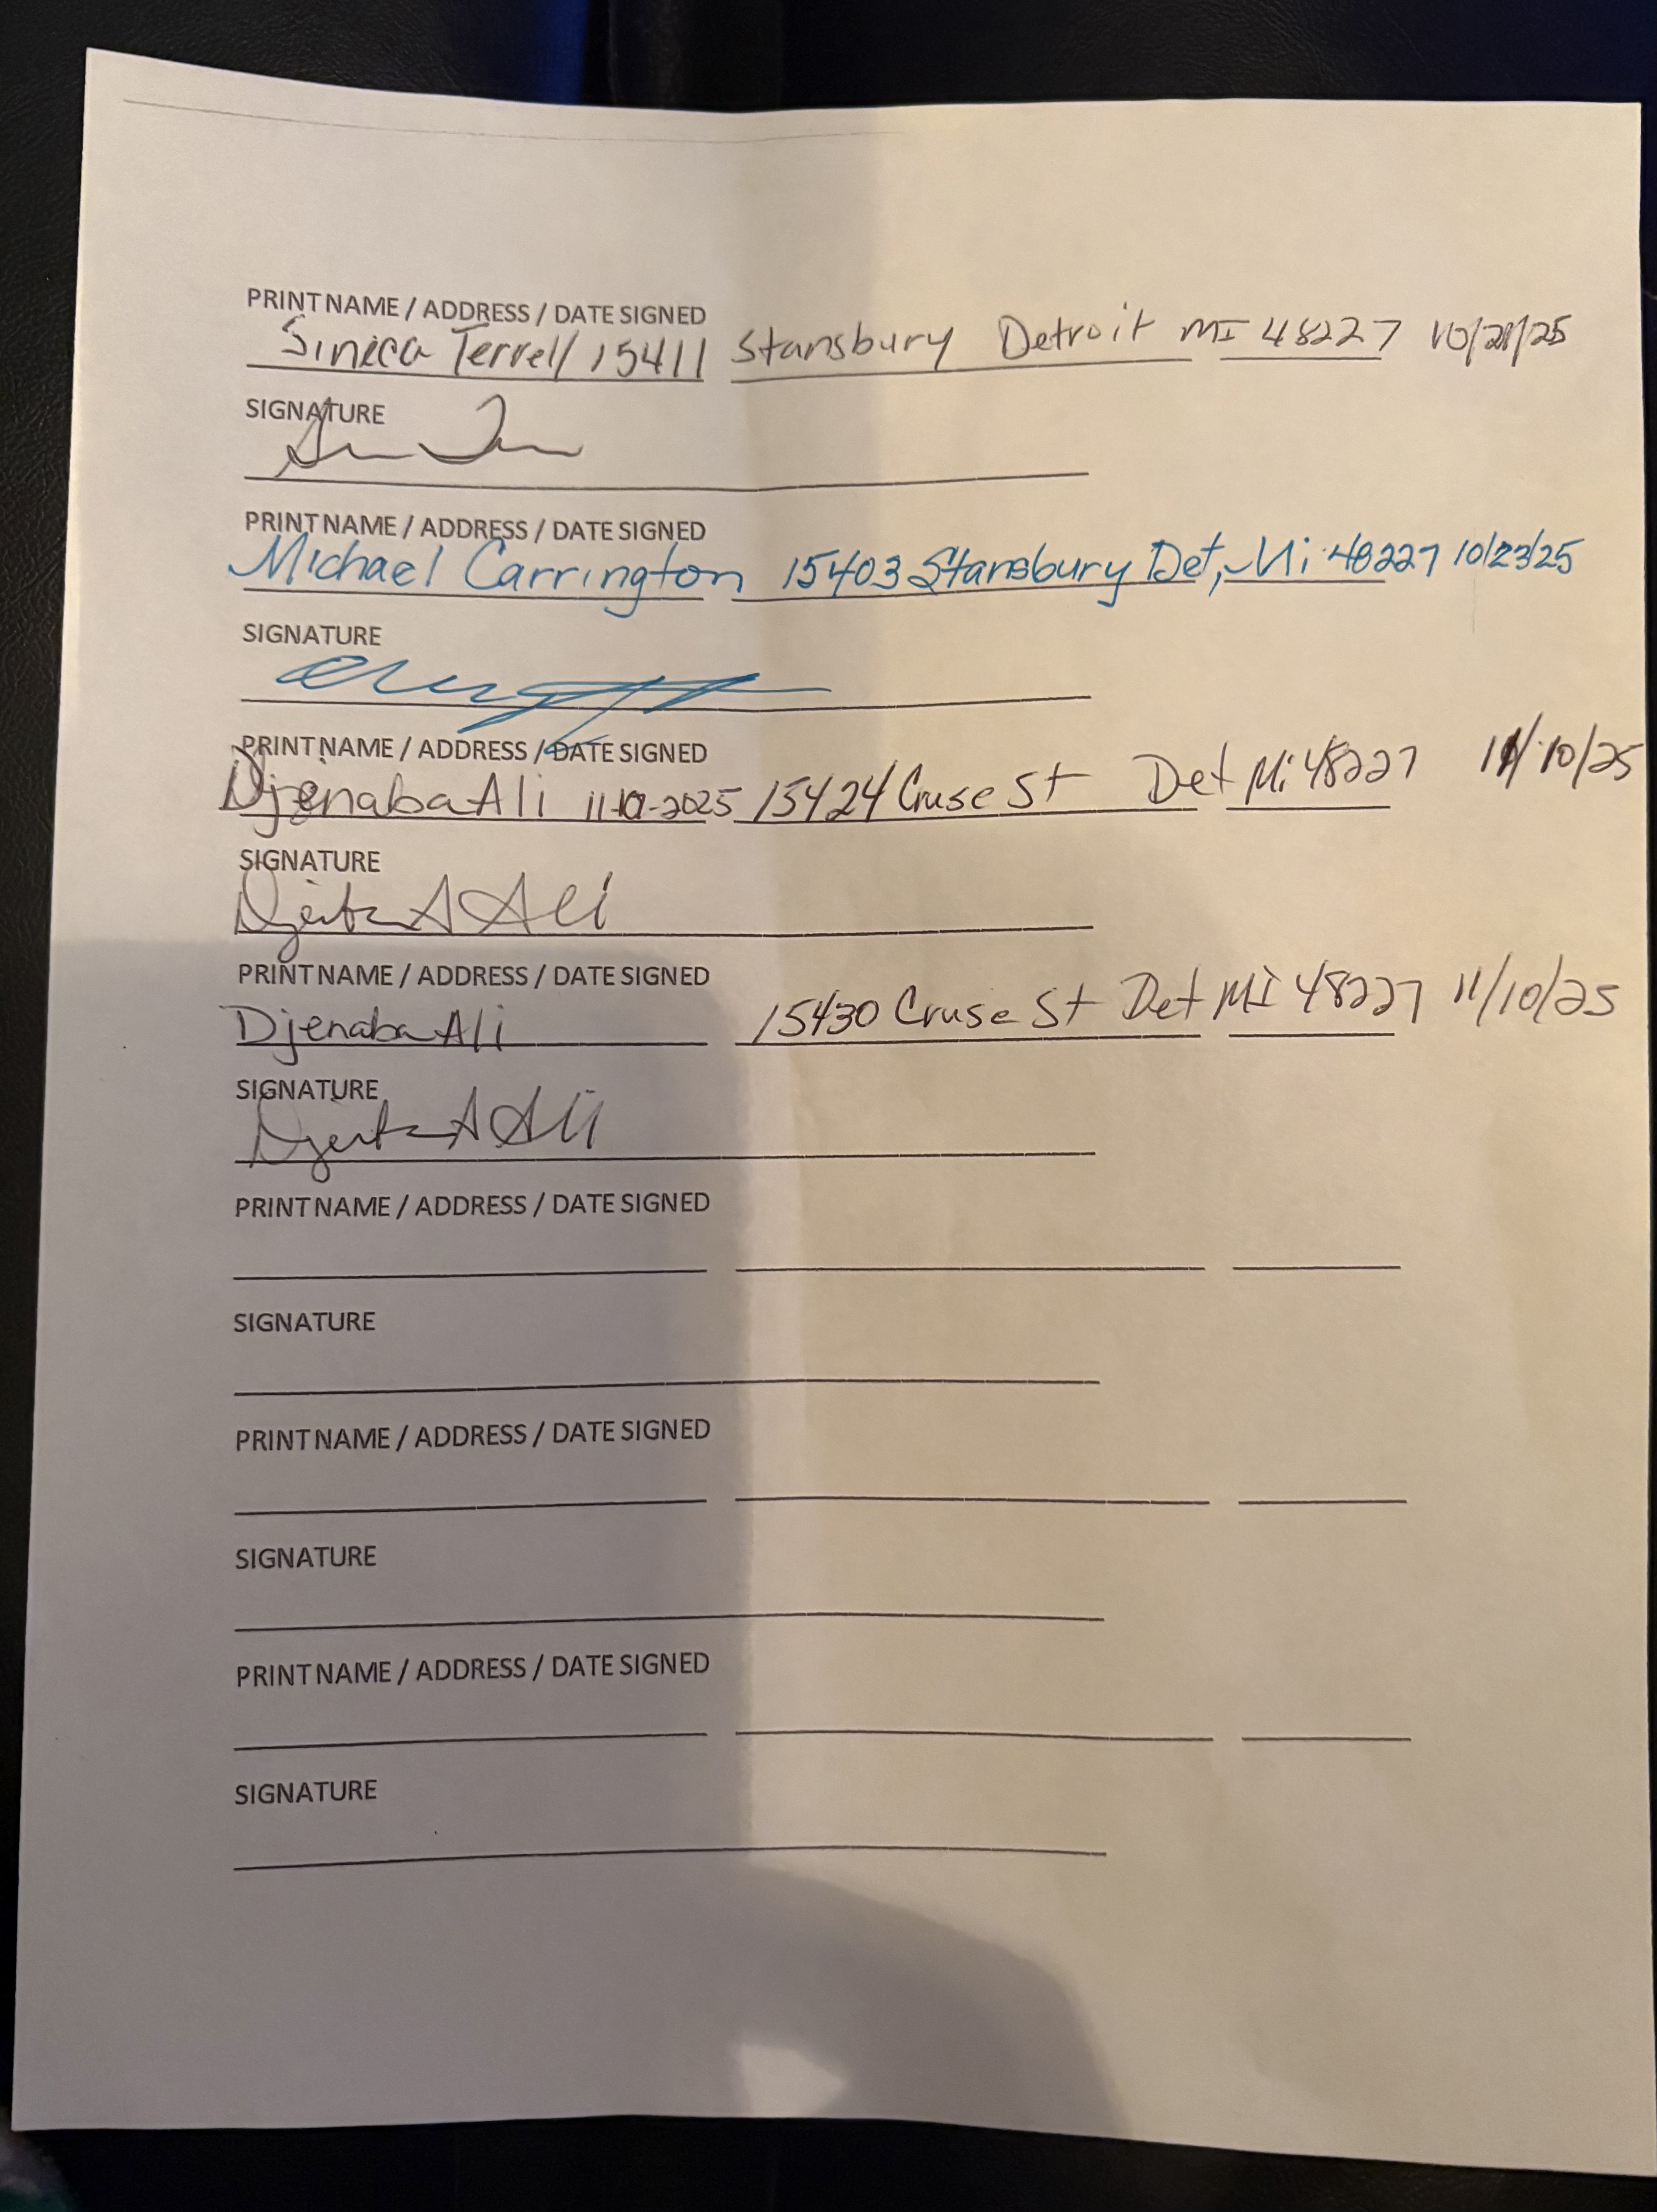 PRINT NAME / ADDRESS / DATE SIGNED
Sineca Terrell 15411 Stansbury Detroit MI 48227 10/21/25
SIGNATURE
PRINT NAME / ADDRESS / DATE SIGNED
Michael Carrington 15403 Stansbury Det, Mi 48227 10/23/25
SIGNATURE
PRINT NAME / ADDRESS / DATE SIGNED
Djenaba Ali 11-10-2025 15424 Cruse St Det Mi 48227 11/10/25
SIGNATURE
A Ali
PRINT NAME / ADDRESS / DATE SIGNED
Djenaba Ali 15430 Cruse St Det MI 48227 11/10/25
SIGNATURE
A Ali
PRINT NAME / ADDRESS / DATE SIGNED
SIGNATURE
PRINT NAME / ADDRESS / DATE SIGNED
SIGNATURE
PRINT NAME / ADDRESS / DATE SIGNED
SIGNATURE